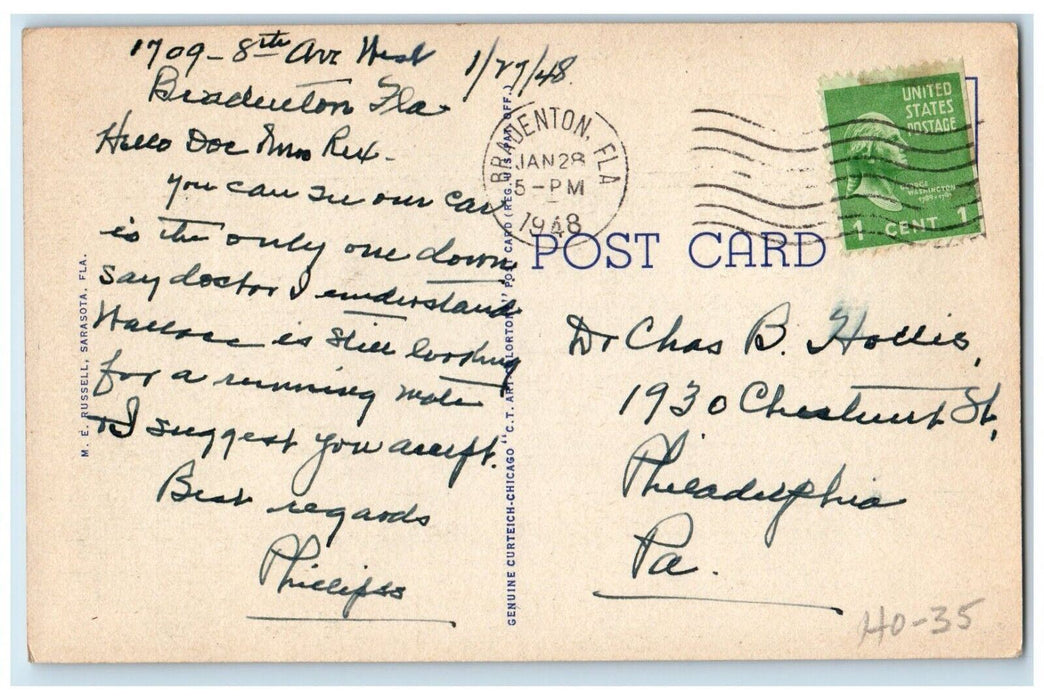 1709 - 8th Ave West
Bradenton Fla
1/27/48
Hello Doc & Mrs Rex -
You can see our car
is the only one down,
say doctor I understand
Wallace is still looking
for a running mate
& I suggest you accept.
Best regards
Phillips
M. E. RUSSELL, SARASOTA, FLA.
GENUINE CURTEICH-CHICAGO "C.T. ART-COLORTONE" POST CARD (REG. U.S. PAT. OFF.)
BRADENTON, FLA
JAN 28
5-PM
1948
UNITED
STATES
POSTAGE
GEORGE
WASHINGTON
1789-1797
1 CENT 1
POST CARD
Dr Chas B. Hollis,
1930 Chestnut St,
Philadelphia
Pa.
40-35